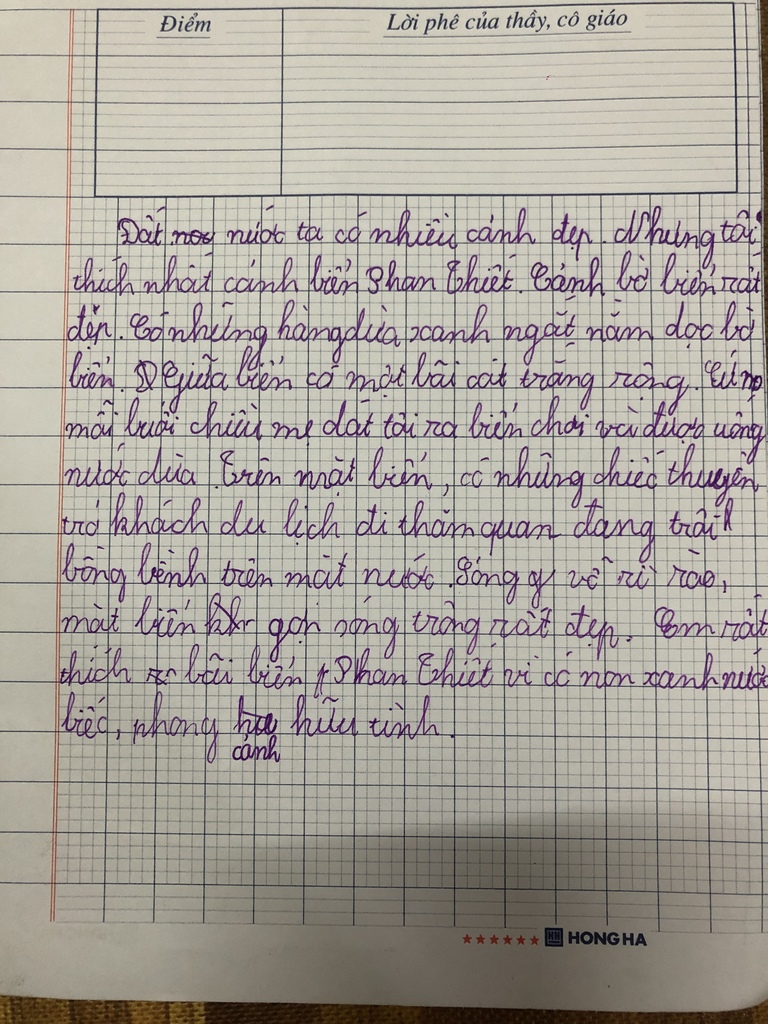 Điểm
Lời phê của thầy, cô giáo
Đất nước ta có nhiều cảnh đẹp. Nhưng tôi
thích nhất cảnh biển Phan Thiết. Cảnh bờ biển rất
đẹp. Có những hàng dừa xanh ngắt nằm dọc bờ
biển. Giữa biển có một bãi cát trắng rộng. Cứ
mỗi buổi chiều mẹ dắt tôi ra biển chơi và được uống
nước dừa. Trên mặt biển, có những chiếc thuyền
trở khách du lịch đi thăm quan đang trôi
bồng bềnh trên mặt nước. Sóng vỗ rì rào,
mặt biển gợn sóng trông rất đẹp. Em rất
thích bãi biển Phan Thiết vì có non xanh nước
biếc, phong cảnh hữu tình.
HONG HA